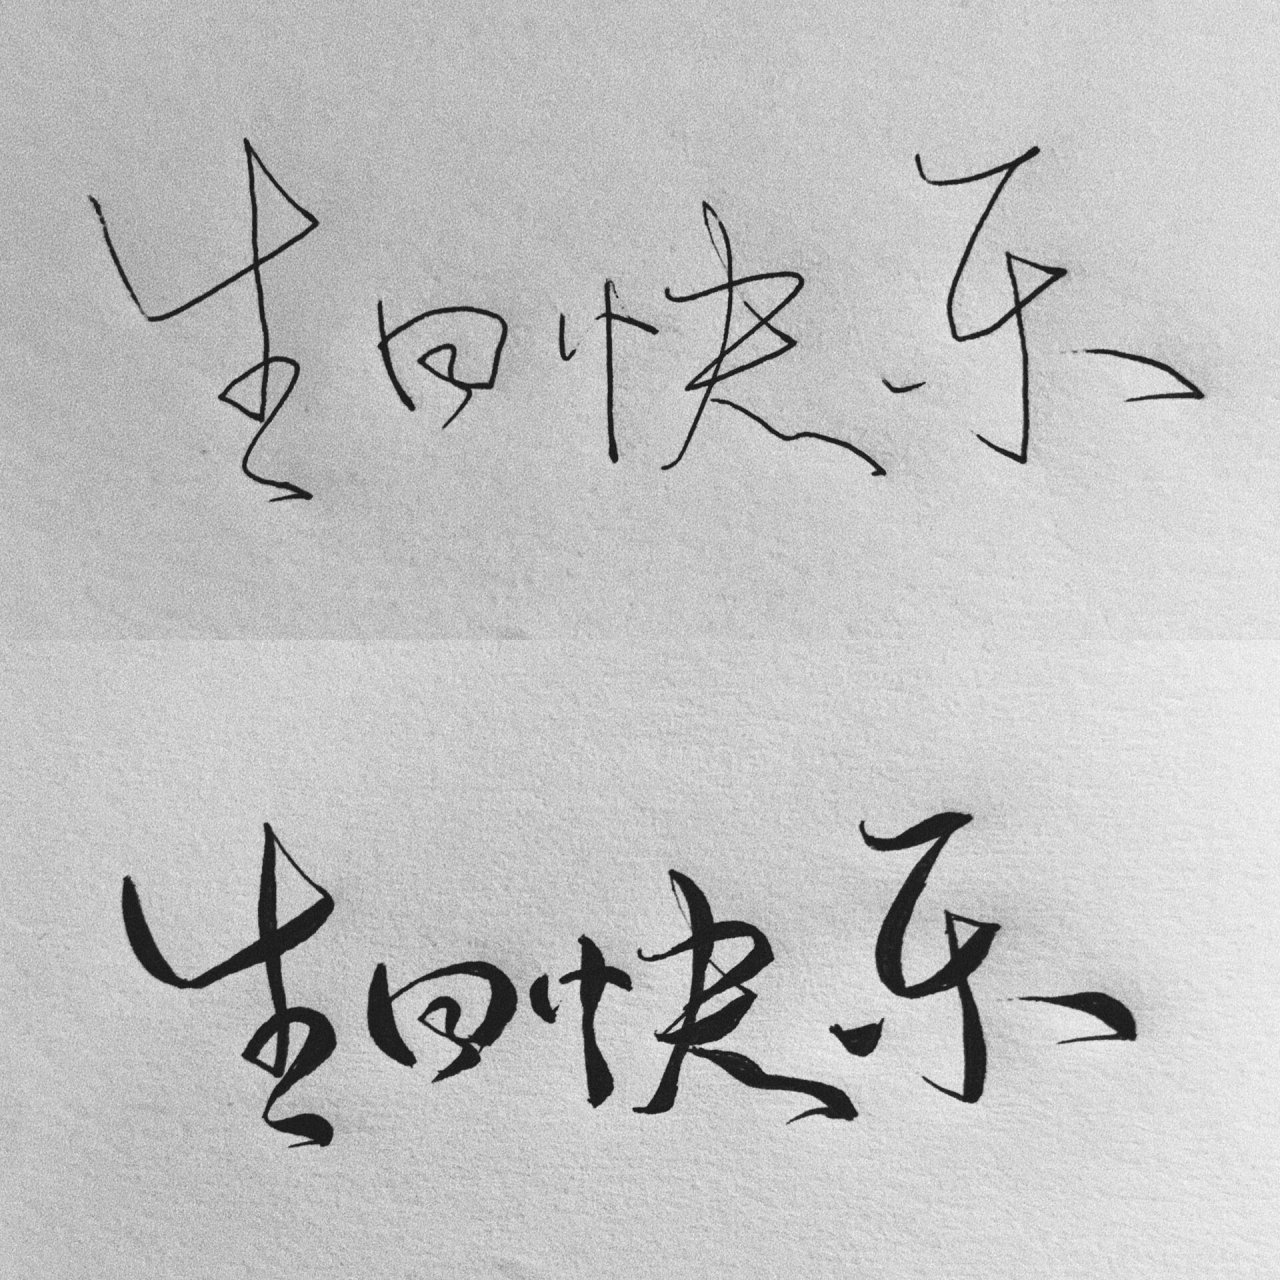 生日快乐
生日快乐